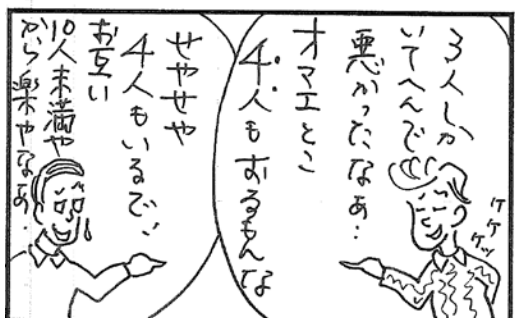 3人しか
いてへんで
悪かったなぁ…
オマエとこ
4人もおるもんな
ケケケッ
せやせや
4人もいるで…
お互い
10人未満や
から楽やなぁ…